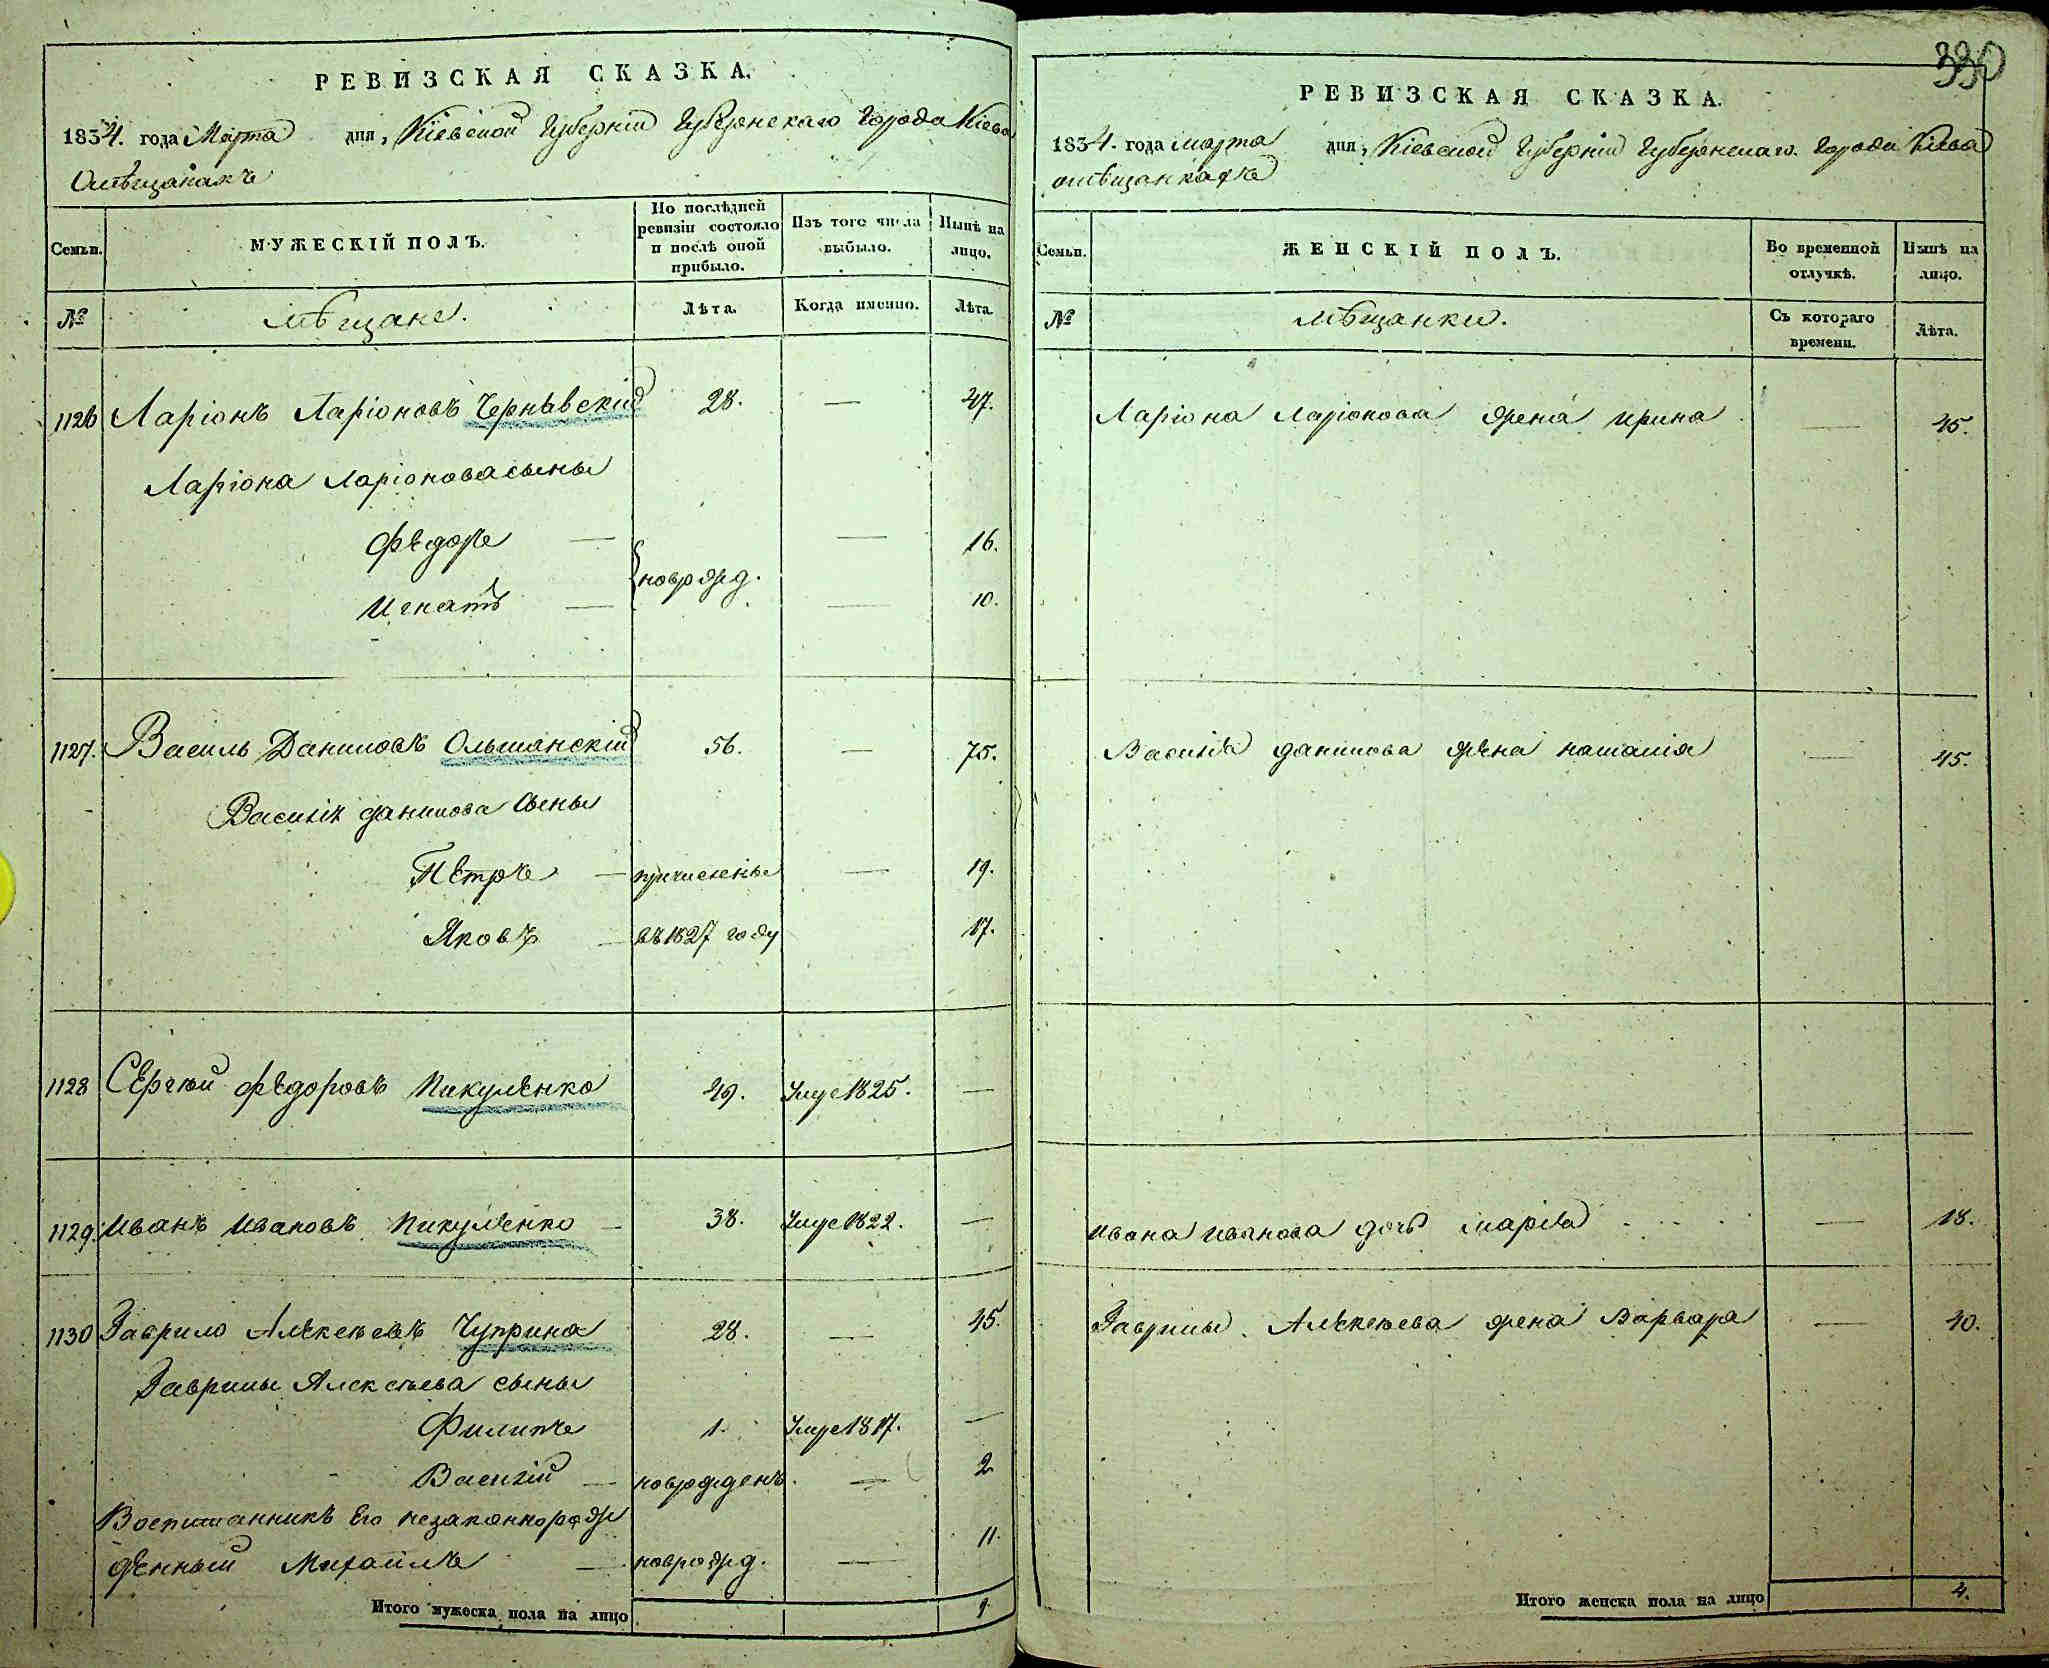 РЕВИЗСКАЯ СКАЗКА.
1834. года Марта дня, Кіевской Губерніи Губернскаго Города Кіева
Омѣщанахъ
Семьи.
МУЖЕСКІЙ ПОЛЪ.
По послѣдней ревизіи состояло и послѣ оной прибыло.
Изъ того числа выбыло.
Нынѣ на лицо.
№
Мѣщане.
Лѣта.
Когда именно.
Лѣта.
1126 Ларіонъ Ларіоновъ Чернѣвскій 28. — 47.
Ларіона Ларіонова сыны
Федоръ — — 16.
новрожд.
Игнатъ — — 10.
1127. Василь Даниловъ Ольшанскій 56. — 75.
Василія Данилова сыны
Петръ — причислены — 19.
Яковъ — въ 1827 году 17.
1128 Сергѣй Федоровъ Пикуленко 49. Умре 1825. —
1129. Иванъ Ивановъ Пикуленко — 38. Умре 1822. —
1130 Гаврило Алексѣевъ Чуприна 28. — 45.
Гаврилы Алексѣева сыны
Филипъ 1. Умре 1817. —
Василій — новрожденъ. — 2
Воспитанникъ Его незаконнорож
денный Михаилъ — новрожд. — 11.
Итого мужеска пола на лицо 9
330
РЕВИЗСКАЯ СКАЗКА.
1834. года марта дня, Кіевской Губерніи Губернскаго Города Кіева
омѣщанкахъ
Семьи.
ЖЕНСКІЙ ПОЛЪ.
Во временной отлучкѣ.
Нынѣ на лицо.
№
Мѣщанки.
Съ котораго времени.
Лѣта.
Ларіона Ларіонова жена Ирина — 45.
Василія Данилова жена Наталія — 45.
Ивана Иванова дочь Марія — 18.
Гаврилы Алексѣева жена Варвара — 40.
Итого женска пола на лицо 4.